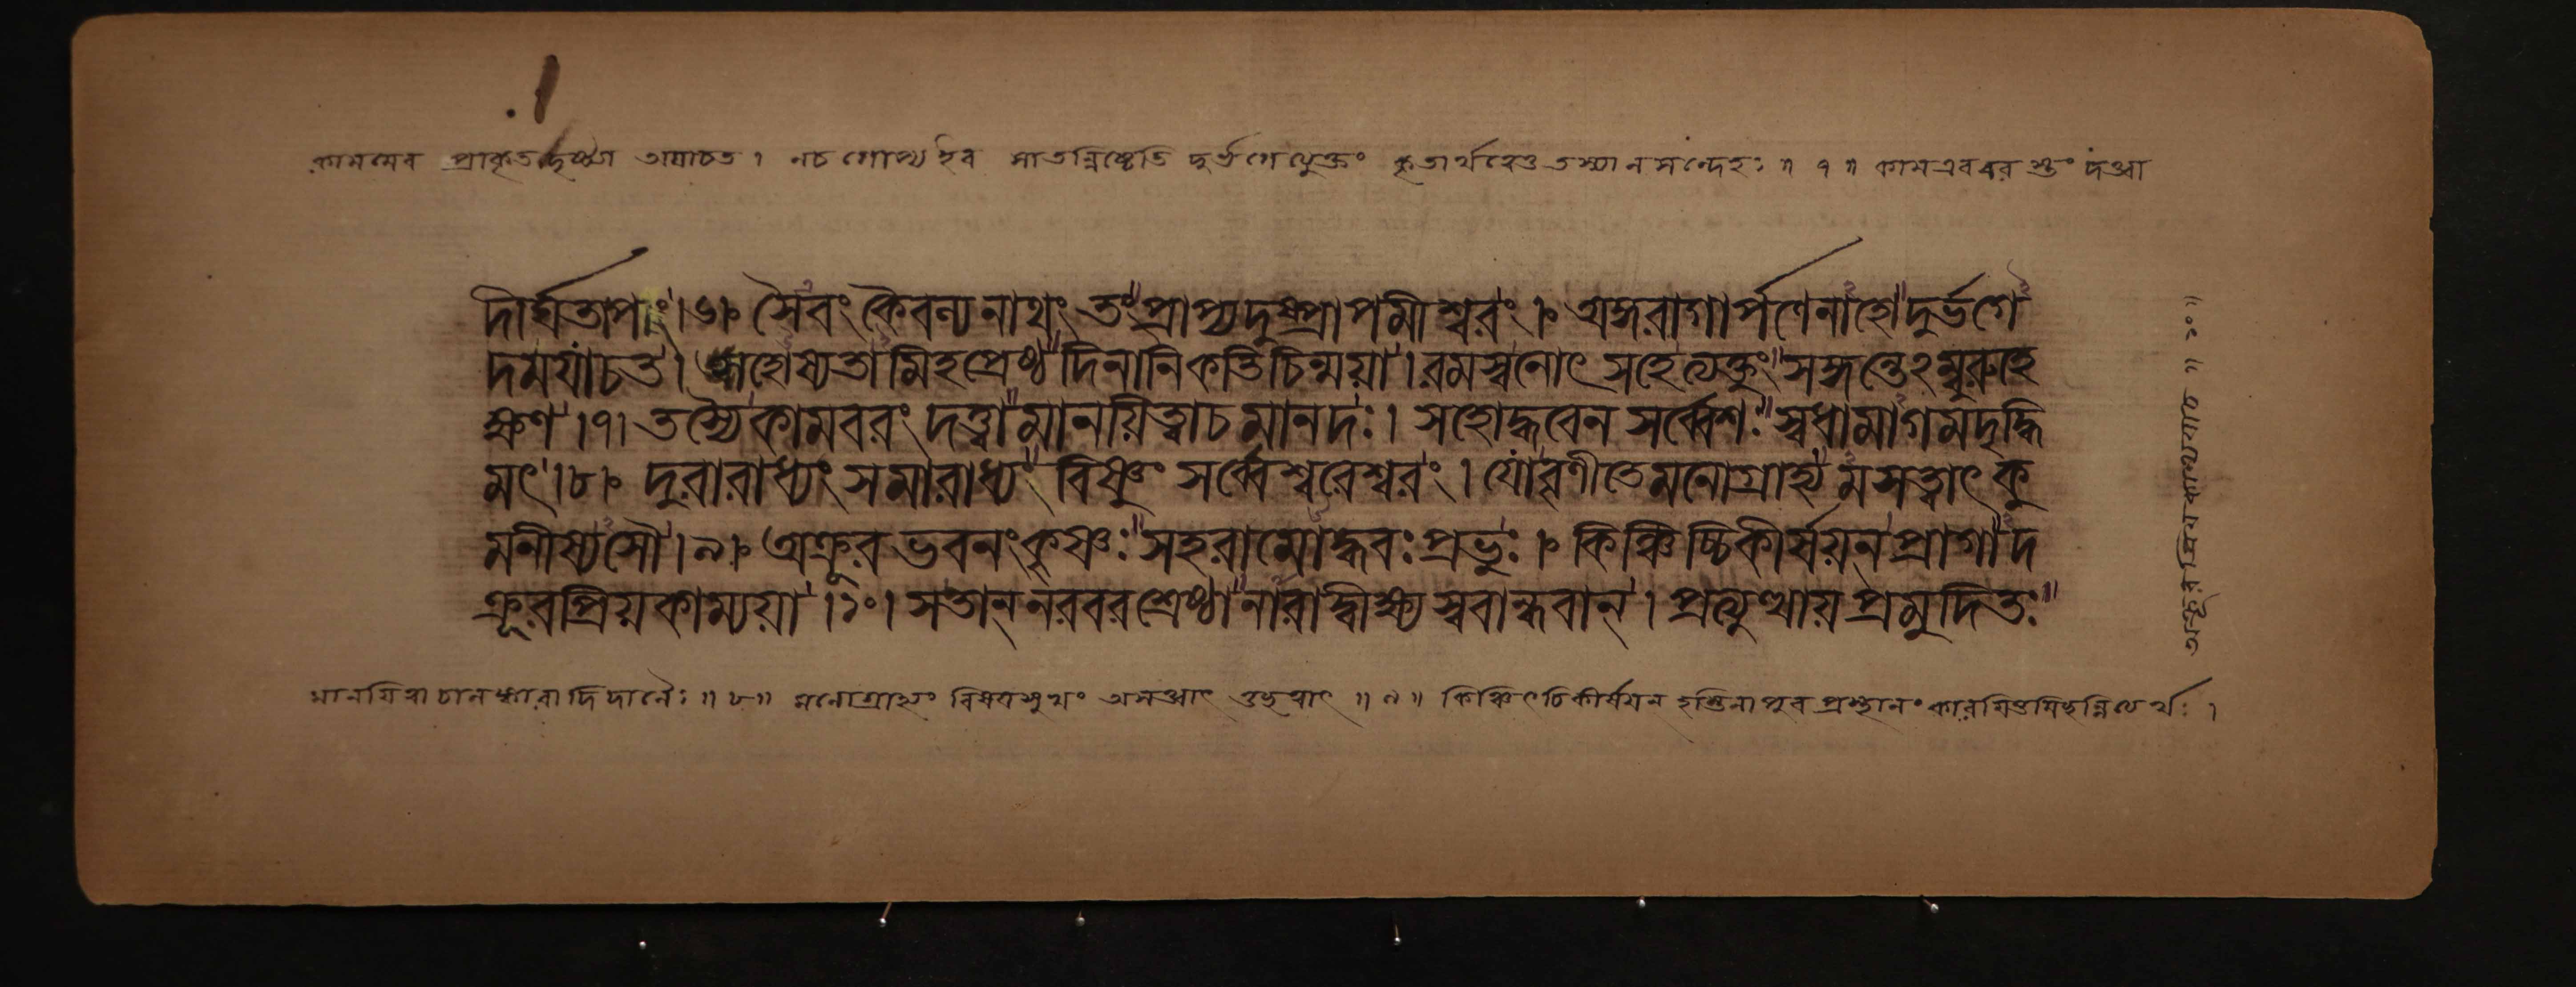 কামমেব প্রাকৃতদৃষ্ট্যা অযাচত । নচ গোপ্য ইব সাতন্নিষ্ঠেতি দুর্ভগেত্যুক্তং কৃতার্থত্বেতু তস্যা ন সন্দেহঃ ॥ ৭ ॥ কামএববর স্তং দত্ত্বা
দীর্ঘতাপং ।৬। সৈবং কৈবল্যনাথং তং প্রাপ্য দুষ্প্রাপমীশ্বরং । অঙ্গরাগার্পণেনাহো দুর্ভগে
দমযাচত । আহোষ্যতামিহ প্রেষ্ঠ দিনানি কতিচিন্ময়া । রমস্ব নোৎসহে ত্যক্তুং সঙ্গন্তেঽম্বুরুহে
ক্ষণ ।৭। তস্যৈ কামবরং দত্ত্বা মানয়িত্বা চ মানদঃ । সহোদ্ধবেন সর্ব্বেশঃ স্বধামাগমদৃদ্ধি
মৎ ।৮। দুরারাধ্যং সমারাধ্য বিষ্ণুং সর্ব্বেশ্বরেশ্বরং । যো বৃণীতে মনোগ্রাহ্যমসত্ত্বাৎ কু
মনীষ্যসৌ ।৯। অক্রূরভবনং কৃষ্ণঃ সহরামোদ্ধবঃ প্রভুঃ । কিঞ্চিচ্চিকীর্ষয়ন্ প্রাগাদ
ক্রূরপ্রিয়কাম্যয়া ।১০। স তান্ নরবরশ্রেষ্ঠানারাদ্বীক্ষ্য স্ববান্ধবান্ । প্রত্যুত্থায় প্রমুদিতঃ
মানযিত্বাচালঙ্কারাদিদানৈঃ ॥ ৮ ॥ মনোগ্রাহ্যং বিষযসুখং অসত্ত্বাৎ তুচ্ছত্বাৎ ॥ ৯ ॥ কিঞ্চিৎ চিকীর্ষযন্ হস্তিনাপুর প্রস্থানং কারযিতুমিচ্ছন্নিত্যর্থঃ ।
অক্রূরপ্রিযকাম্যযাচ ॥ ১০ ॥